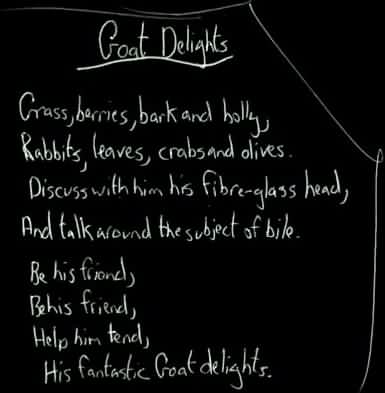 Goat Delights
Grass, berries, bark and holly,
Rabbits, leaves, crabs and olives.
Discuss with him his fibre-glass head,
And talk around the subject of bile.
Be his friend,
Be his friend,
Help him tend,
His fantastic Goat delights.